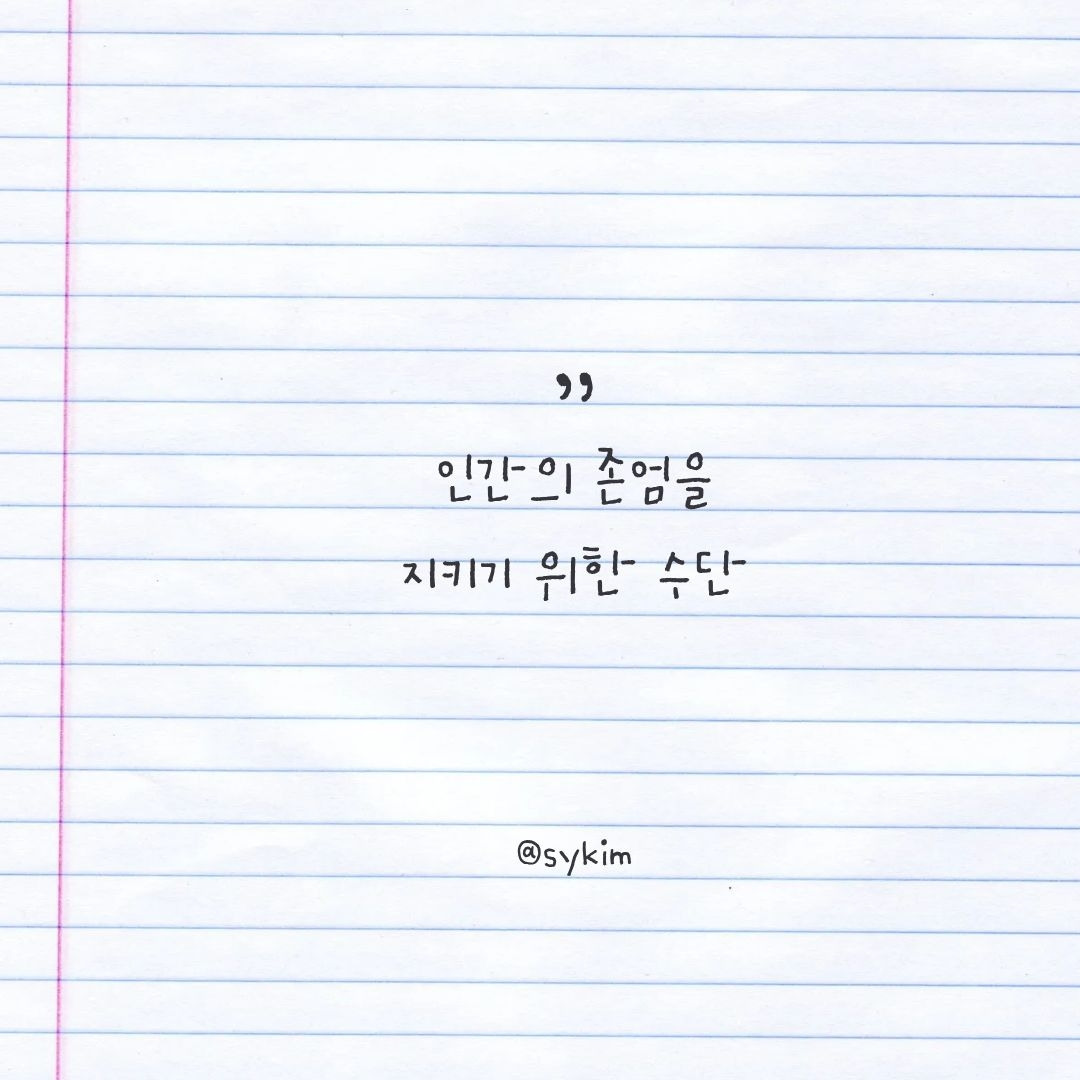 ”
인간의 존엄을
지키기 위한 수단
@sykim